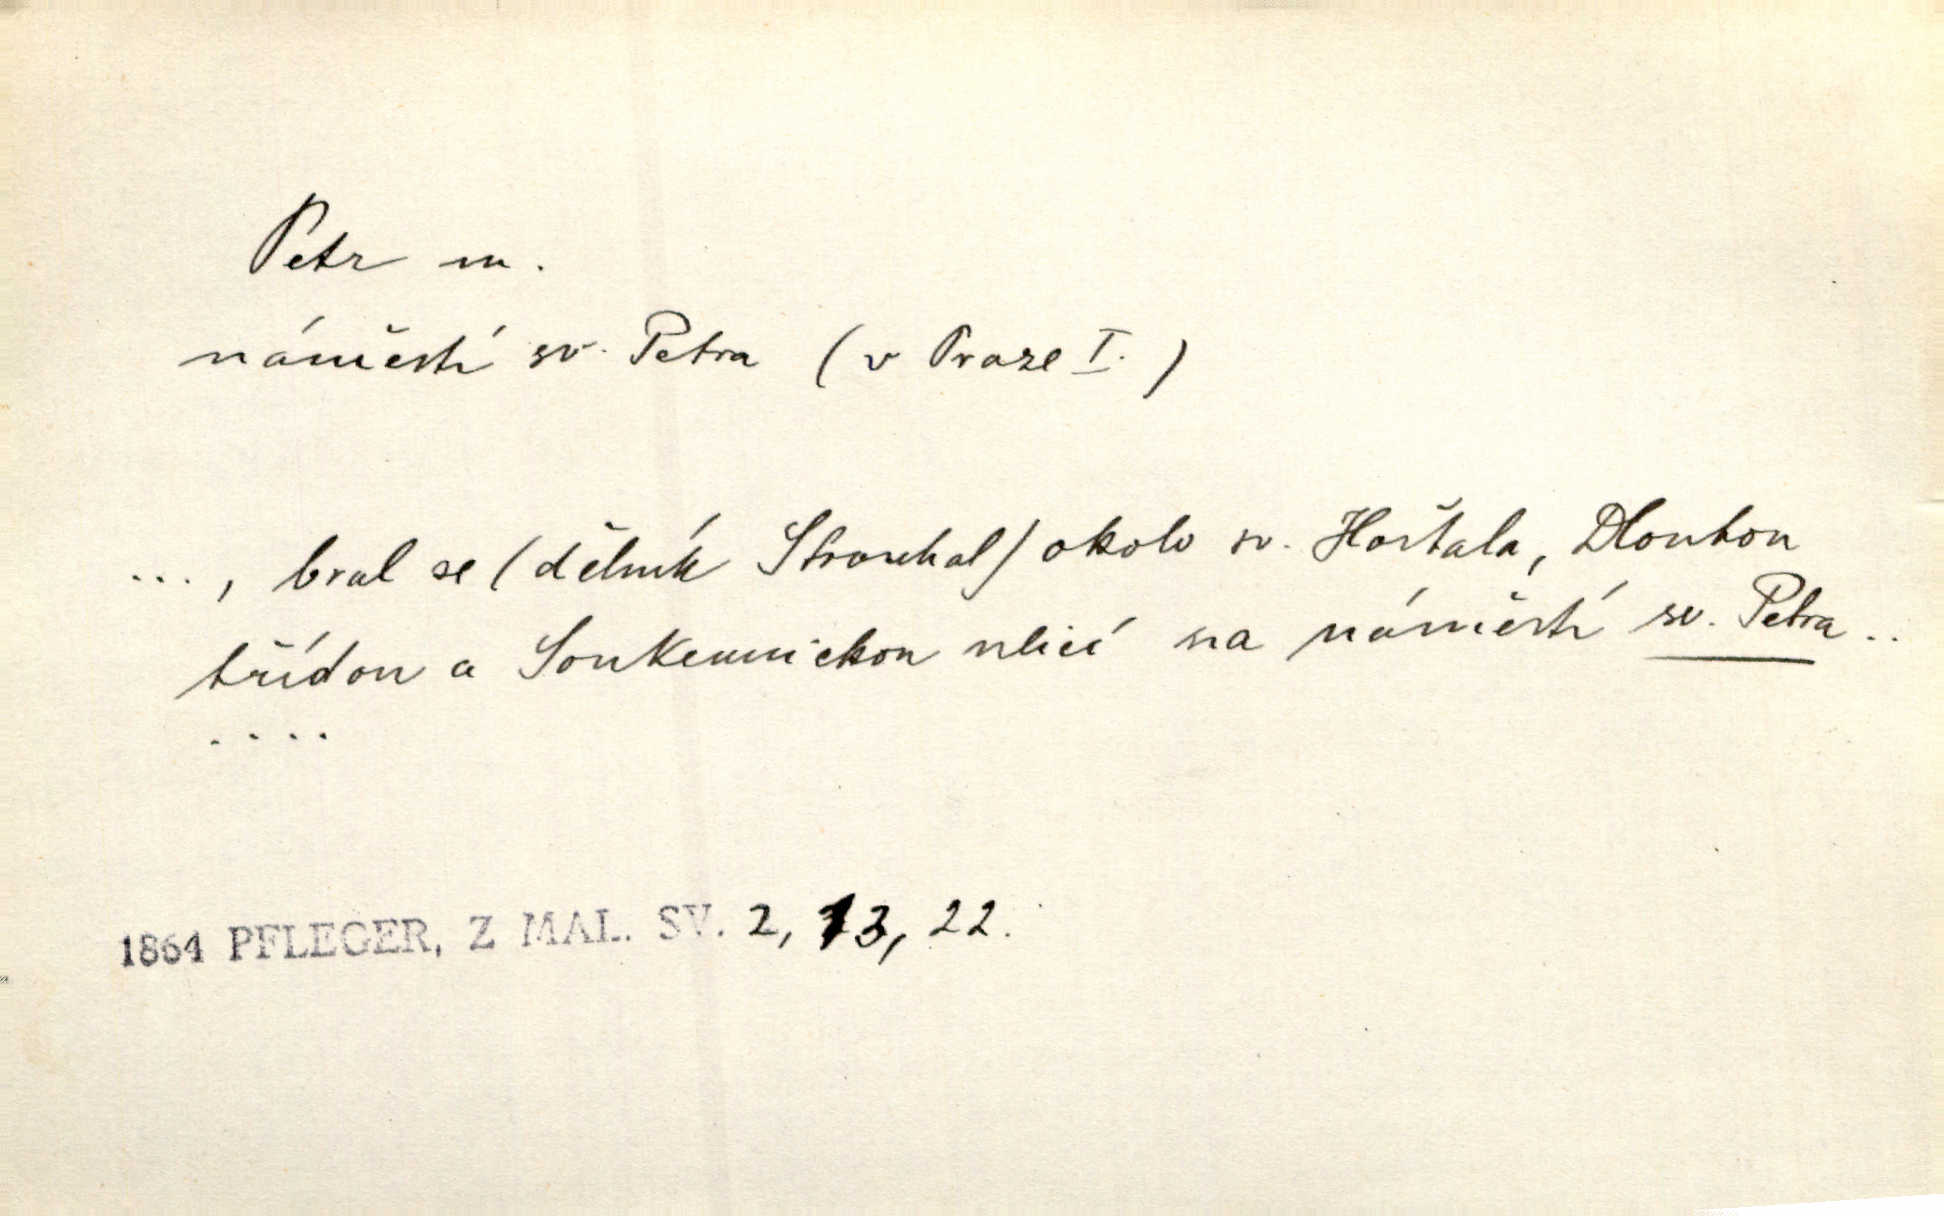 Petr m.
náměstí sv. Petra (v Praze I.)
..., bral se (dělník Strouhal) okolo sv. Haštala, Dlouhou
třídou a Soukennickou ulicí na náměstí sv. Petra ..
....
1864 PFLEGER, Z MAL. SV. 2, 13, 22.